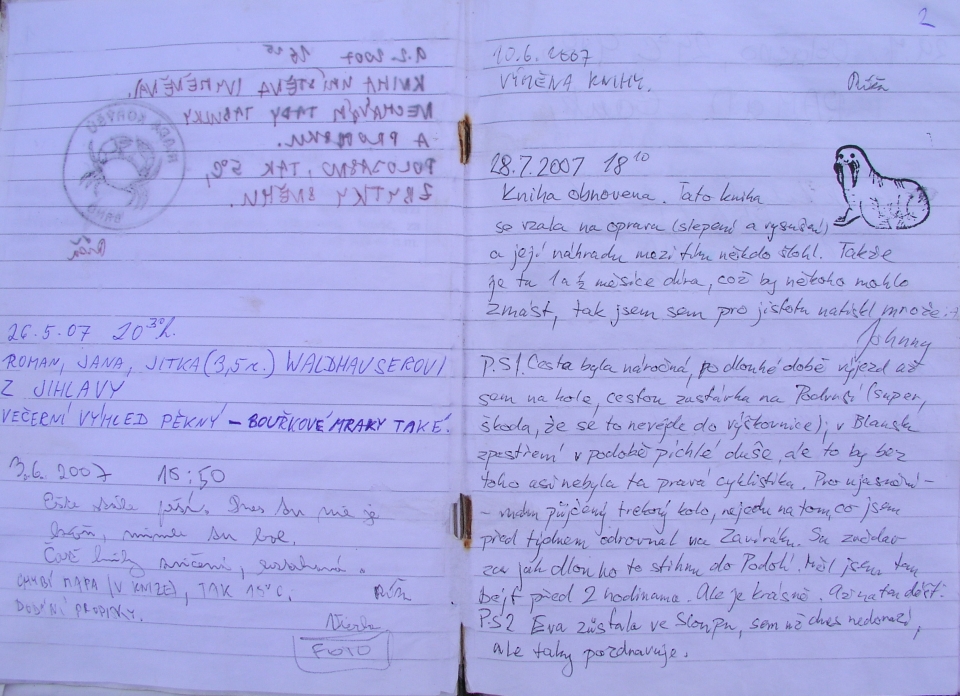 9.2.2007 16
KNIHA UMÍSTĚNA (VYMĚNĚNA).
NECHÁVÁM TADY TABULKY
A PROPISKU.
POLOJASNO, TAK 5°C,
ZBYTKY SNĚHU.
Růža
26.5.07 20³⁰h.
ROMAN, JANA, JITKA (3,5 r.) WALDHAUSEROVI
Z JIHLAVY
VEČERNÍ VÝHLED PĚKNÝ – BOUŘKOVÉ MRAKY TAKÉ.
3.6.2007 18:50
je
CHYBÍ MAPA (V KNIZE), TAK 15°C. Růža
DODÁNÍ PROPISKY.
FOTO
2
10.6.2007
VÝMĚNA KNIHY. Růža
28.7.2007 18¹⁰
Kniha obnovena. Tato kniha
se vzala na opravu (slepení a vysušení)
a její náhradu mezitím někdo štohl. Takže
je tu 1 a ½ měsíce díra, což by někoho mohlo
zmást, tak jsem sem pro jistotu natiskl mrože :-)
Johnny
P.S1. Cesta byla náročná, po dlouhé době výjezd až
sem na kole, cestou zastávka na Podvrší (super,
škoda, že se to nevejde do výškovnice); v Blansku
zpestření v podobě píchlé duše, ale to by bez
toho asi nebyla ta pravá cyklistika. Pro ujasnění –
– mám půjčený trekový kolo, nejedu na tom, co jsem
před týdnem odrovnal na Závíráku. Su zvědav
za jak dlouho to stihnu do Podolí. Měl jsem tam
bejt před 2 hodinama. Ale je krásně. Až na ten déšť.
P.S2 Eva zůstala ve Sloupu, sem už dnes nedorazí,
ale taky pozdravuje.